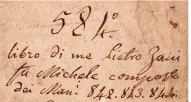 584.
libro di me Pietro Zani
fu Michele composto
dei Map.i 842. 843. 844.